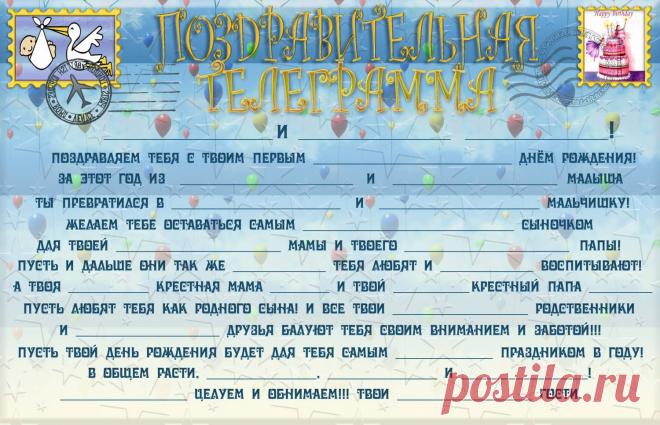 ПОЗДРАВИТЕЛЬНАЯ
Happy Birthday
ТЕЛЕГРАММА
____________ И ____________ ____________!
ПОЗДРАВЛЯЕМ ТЕБЯ С ТВОИМ ПЕРВЫМ ____________ ДНЁМ РОЖДЕНИЯ!
ЗА ЭТОТ ГОД ИЗ ____________ И ____________ МАЛЫША
ТЫ ПРЕВРАТИЛСЯ В ____________ И ____________ МАЛЬЧИШКУ!
ЖЕЛАЕМ ТЕБЕ ОСТАВАТЬСЯ САМЫМ ____________ СЫНОЧКОМ
ДЛЯ ТВОЕЙ ____________ МАМЫ И ТВОЕГО ____________ ПАПЫ!
ПУСТЬ И ДАЛЬШЕ ОНИ ТАК ЖЕ ____________ ТЕБЯ ЛЮБЯТ И ____________ ВОСПИТЫВАЮТ!
А ТВОЯ ____________ КРЕСТНАЯ МАМА ____________ И ТВОЙ ____________ КРЕСТНЫЙ ПАПА ____________
ПУСТЬ ЛЮБЯТ ТЕБЯ КАК РОДНОГО СЫНА! И ВСЕ ТВОИ ____________ РОДСТВЕННИКИ
И ____________ ДРУЗЬЯ БАЛУЮТ ТЕБЯ СВОИМ ВНИМАНИЕМ И ЗАБОТОЙ!!!
ПУСТЬ ТВОЙ ДЕНЬ РОЖДЕНИЯ БУДЕТ ДЛЯ ТЕБЯ САМЫМ ____________ ПРАЗДНИКОМ В ГОДУ!
В ОБЩЕМ РАСТИ, ____________, ____________ И ____________!
____________ ЦЕЛУЕМ И ОБНИМАЕМ!!! ТВОИ ____________ ГОСТИ.
postila.ru